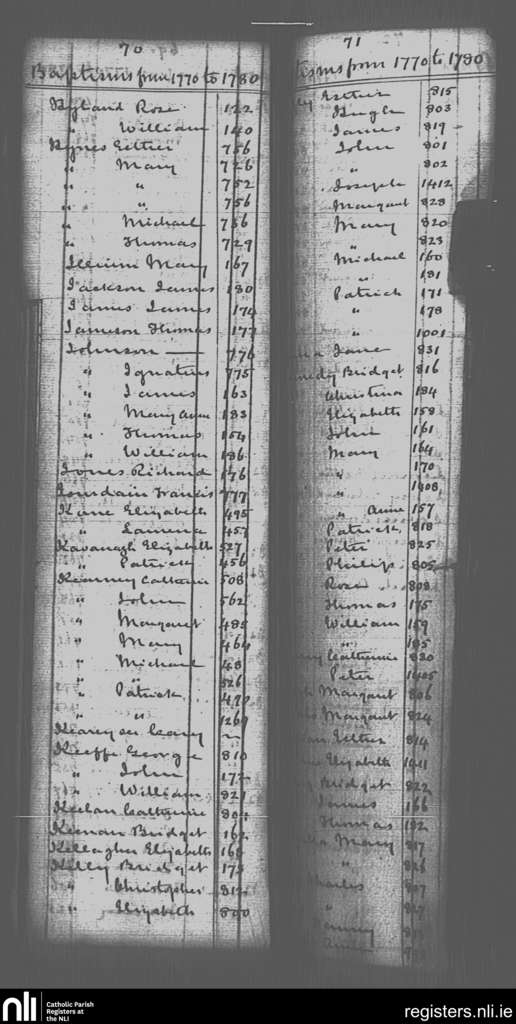 70
Baptisms from 1770 to 1780
Hyland Rose 122
" William 140
Hynes Esther 756
" Mary 726
" " 752
" " 756
" Michael 736
" Thomas 729
Mary 167
Jackson James 180
James James 174
Jameson Thomas 177
Johnson — 776
" Ignatius 775
" James 163
" Mary Anne 183
" Thomas 154
" William 186
Jones Richard 176
Jourdain Francis 777
Kane Elizabeth 495
" 457
Kavanagh Elizabeth 527
" Patrick 456
Kearney Catherine 508
" John 562
" Margaret 485
" Mary 464
" Michael 48
" " 526
" Patrick 472
" " 1269
Keary or Carey
Keeffe George 810
" John 172
" William 821
Keelan Catherine 804
Keenan Bridget 162
Kellagher Elizabeth 166
Kelly Bridget 175
" Christopher 812
" Elizabeth 800
71
tisms from 1770 to 1780
Esther 815
Hugh 803
James 819
John 801
" 802
Joseph 1412
Margaret 828
Mary 820
" 823
Michael 160
" 181
Patrick 171
" 178
" 1001
Jane 831
Bridget 816
Christina 184
Elizabeth 158
John 161
Mary 164
" 170
" 1408
" Anne 157
Patrick 818
Peter 825
Philip 805
Rose 808
Thomas 175
William 159
" 185
Catherine 830
Peter 1405
Margaret 806
Margaret 824
Esther 814
Elizabeth 1411
Bridget 822
James 166
Thomas 182
Mary 817
" 826
Charles 807
" 827
nli
Catholic Parish
Registers at
the NLI
registers.nli.ie